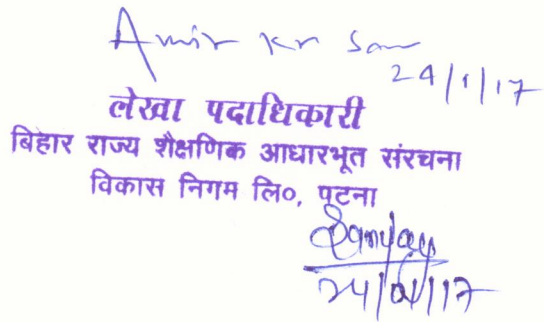 Amir Kr San
24/1/17
लेखा पदाधिकारी
बिहार राज्य शैक्षणिक आधारभूत संरचना
विकास निगम लि०, पटना
Sanjay
24/01/17